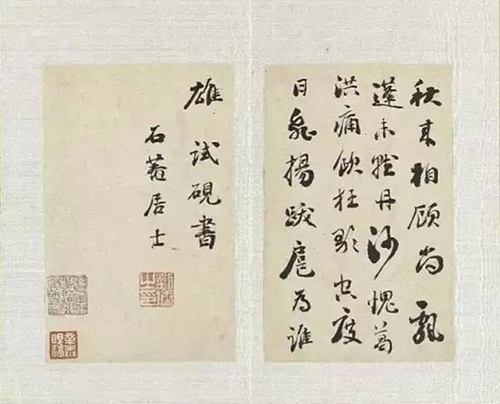 秋來相顧尚飄
蓬未就丹沙愧葛
洪痛飲狂歌空度
日飛揚跋扈為誰
雄
試硯書
石菴居士